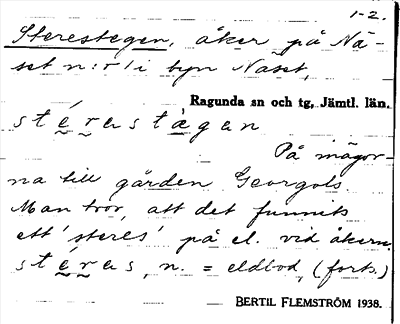 1-2.
Sterestegen, åker på Nä-
set n:r 1 i byn Näset,
Ragunda sn och tg, Jämtl. län.
stérastägan
På mägor-
na till gården Georgols
Man tror, att det funnits
ett 'steres' på el. vid åkern.
stéras, n. = eldbod, (forts.)
BERTIL FLEMSTRÖM 1938.